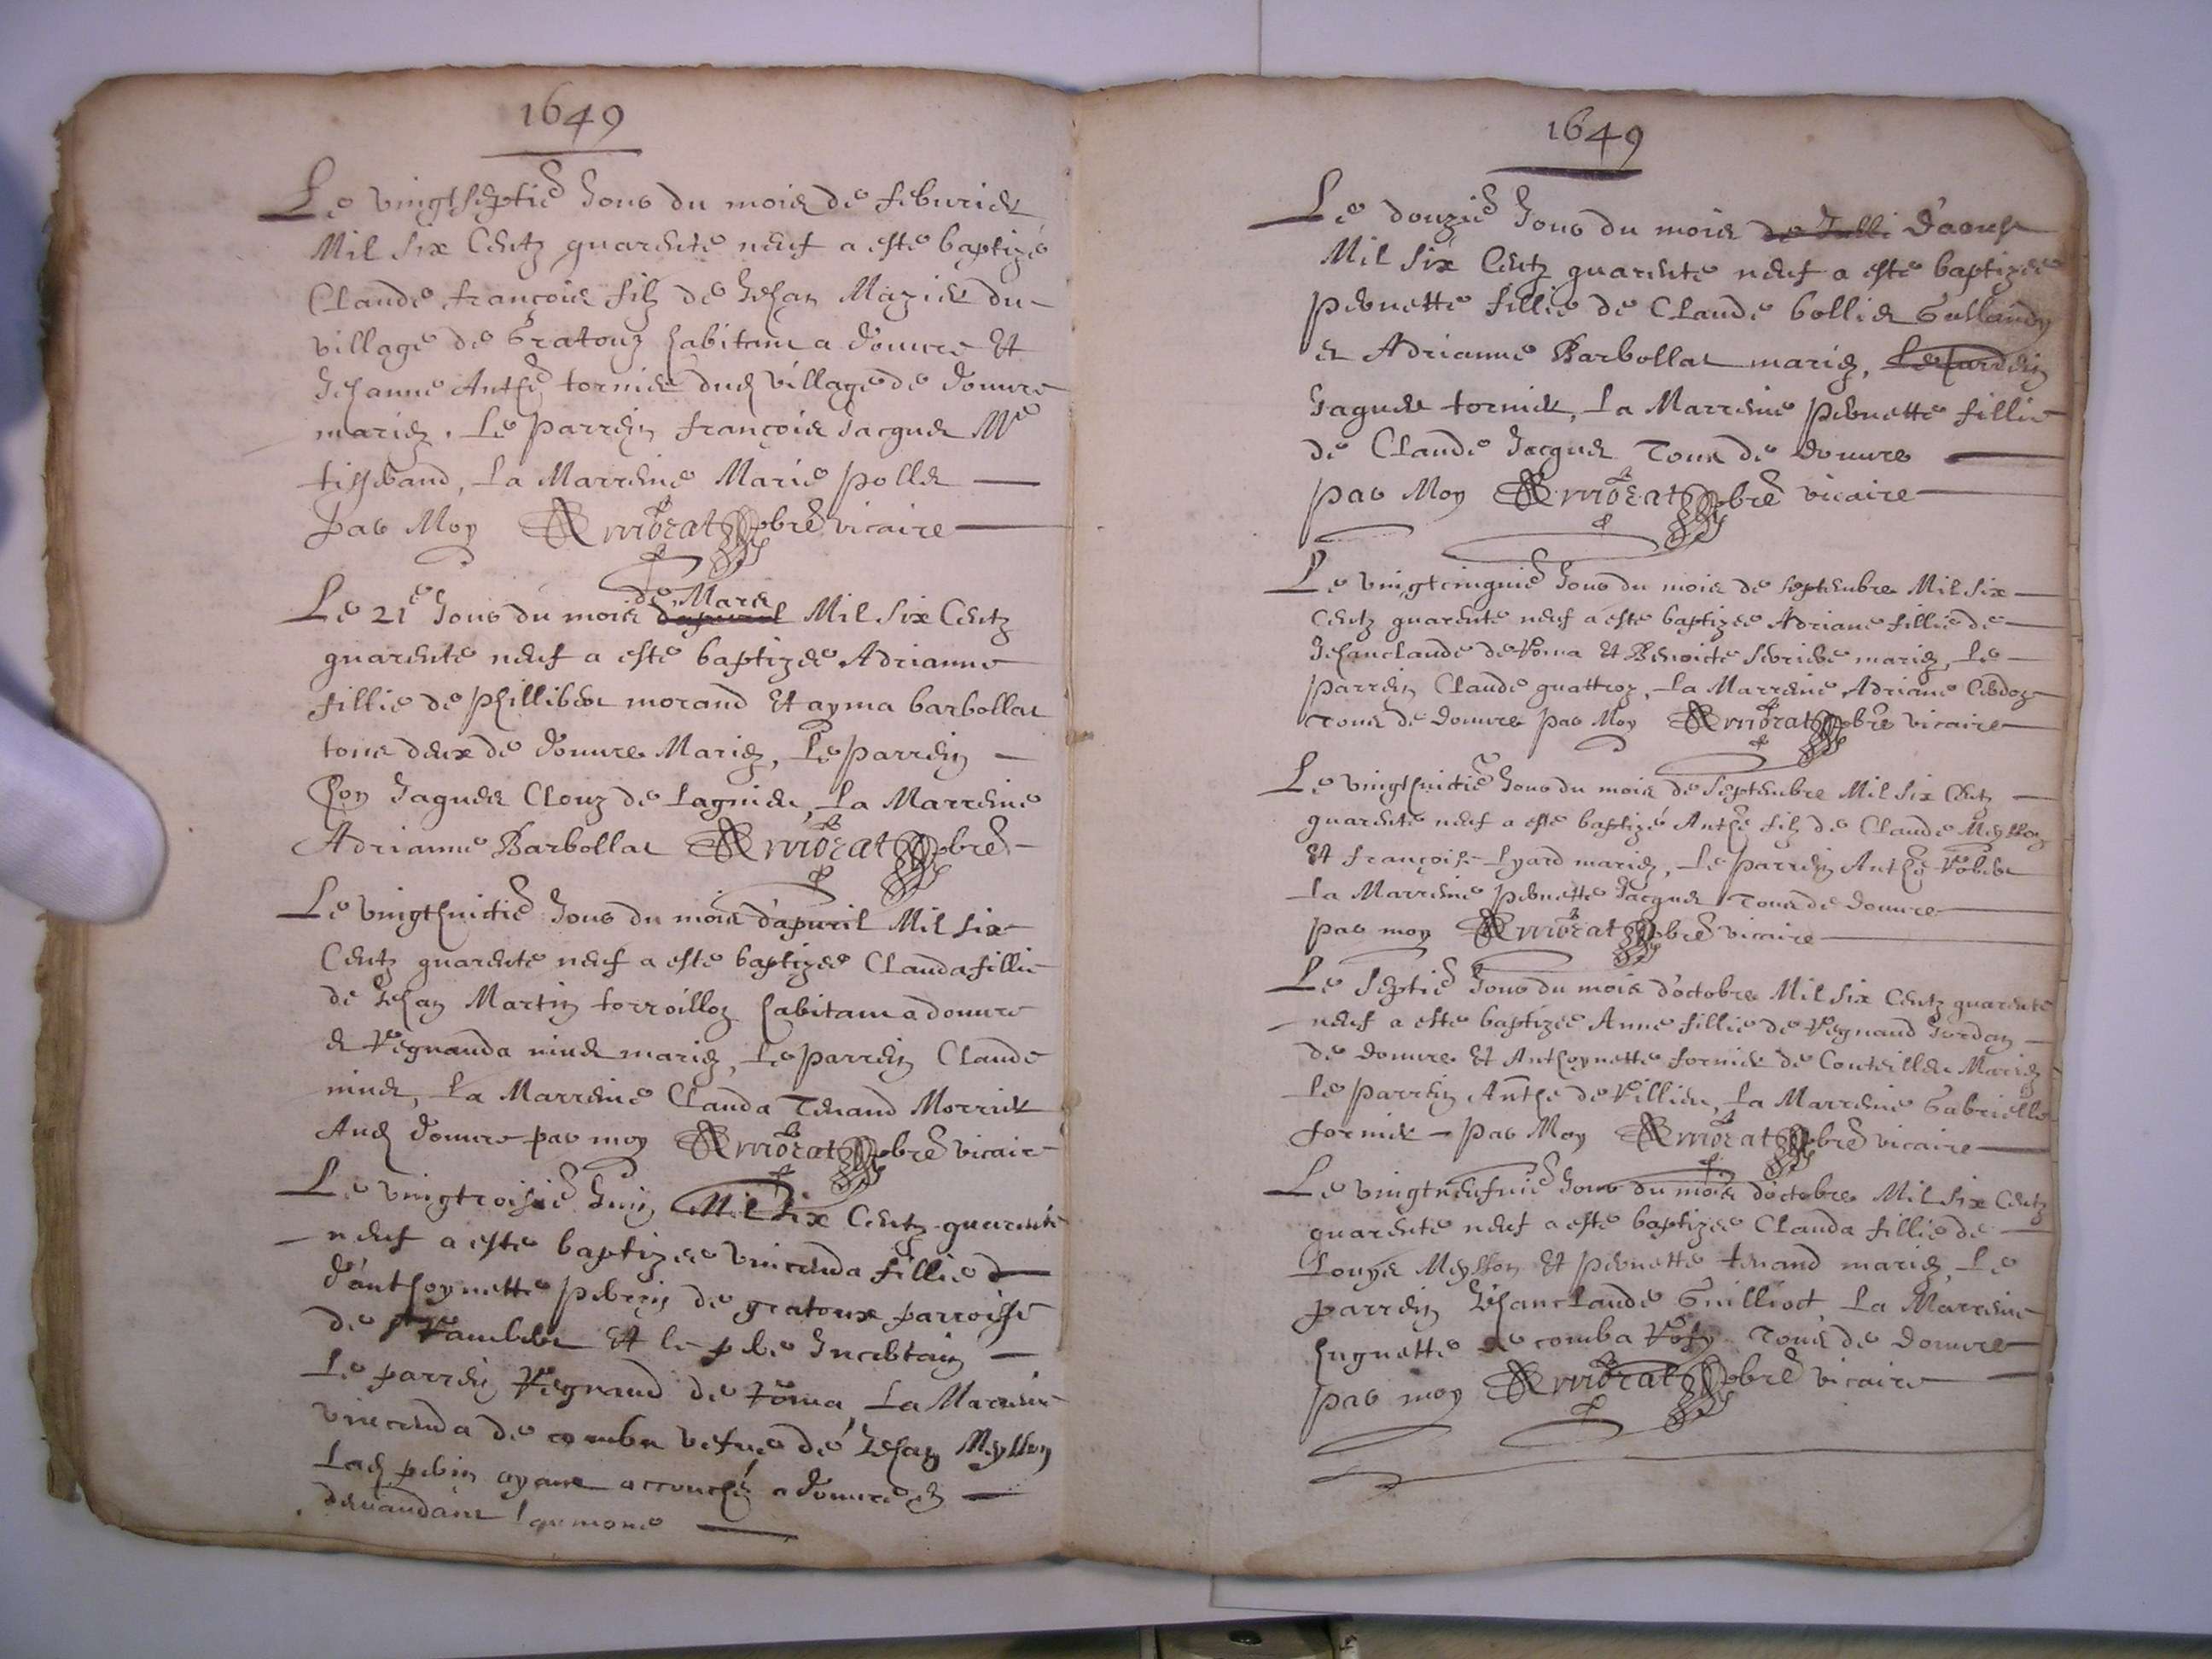 1649
Le vingtseptie Jour du mois de feburier
Mil six Centz quarente neuf a este baptizé
Claude françois filz de Jehan Mazier du
village de Gratouz habitant a douure Et
Jehanne Anthe tornier dud village de douure
mariez. Le parrein françois Jacques Me
tisserand, La Marreine Marie polles
par Moy Morat pbre vicaire
de Mars
Le 21e Jour du mois Mil six Centz
quarente neuf a este baptizee Adrianne
fillie de phillibert morand Et ayma barbollat
tous deux de douure Mariez, Le parrein
hon Jaques Clouz de Lagnieu, La Marreine
Adrianne Barbollat Morat pbre
Le vingthuictie Jour du mois d'apuril Mil six
Centz quarente neuf a este baptizee Clauda fillie
de Jehan Martin torroilloz habitant a douure
et Regnauda niues mariez, Le parrein Claude
niues, La Marreine Clauda Tenand Morrier
Aud douure par moy Morat pbre vicaire
Le vingtroisie Juin Mil six Centz quarente
neuf a este baptizee vincenda fillie
d'anthoynette perrin de gratoux parroisse
de st Rambert Et le pere Incertain
Le parrein Regnaud de Roma La Marreine
vincenda de comba vefue de Jehan Meysson
Lad perin ayant accouché a douure et
demandant l'aumone
1649
Le douzie Jour du mois de Julli d'aoust
Mil six Centz quarente neuf a este baptizee
pernette fillie de Claude bollier Gallandy
et Adrianne Barbollat mariez, Le parrein
Jaques tornier, La Marreine pernette fillie
de Claude Jacques Tous de douure
par Moy Morat pbre vicaire
Le vingtcinquie Jour du mois de septembre Mil six
Centz quarente neuf a este baptizee Adriane fillie de
Jehanclaude de Roma Et Benoicte mariez, Le
parrein Claude quattroz, La Marreine Adriane
Tous de douure par Moy Morat pbre vicaire
Le vingthuictie Jour du mois de septembre Mil six Centz
quarente neuf a este baptizé Anthe filz de Claude Meysson
Et françoise Lyard mariez, Le parrein Anthe Robert
La Marreine pernette Jacques Tous de douure
par moy Morat pbre vicaire
Le septie Jour du mois d'octobre Mil six Centz quarente
neuf a este baptizee Anne fillie de Regnaud Jordan
de douure Et Anthoynette fornier de Mariez
Le parrein Anthe de Rillieu, La Marreine Gabrielle
fornier par Moy Morat pbre vicaire
Le vingtneufuie Jour du mois d'octobre Mil six Centz
quarente neuf a este baptizee Clauda fillie de
Louys Meysson Et pernette tenand mariez, Le
parrein Jehanclaude Guilliot La Marreine
huguette de comba Tous de douure
par moy Morat pbre vicaire